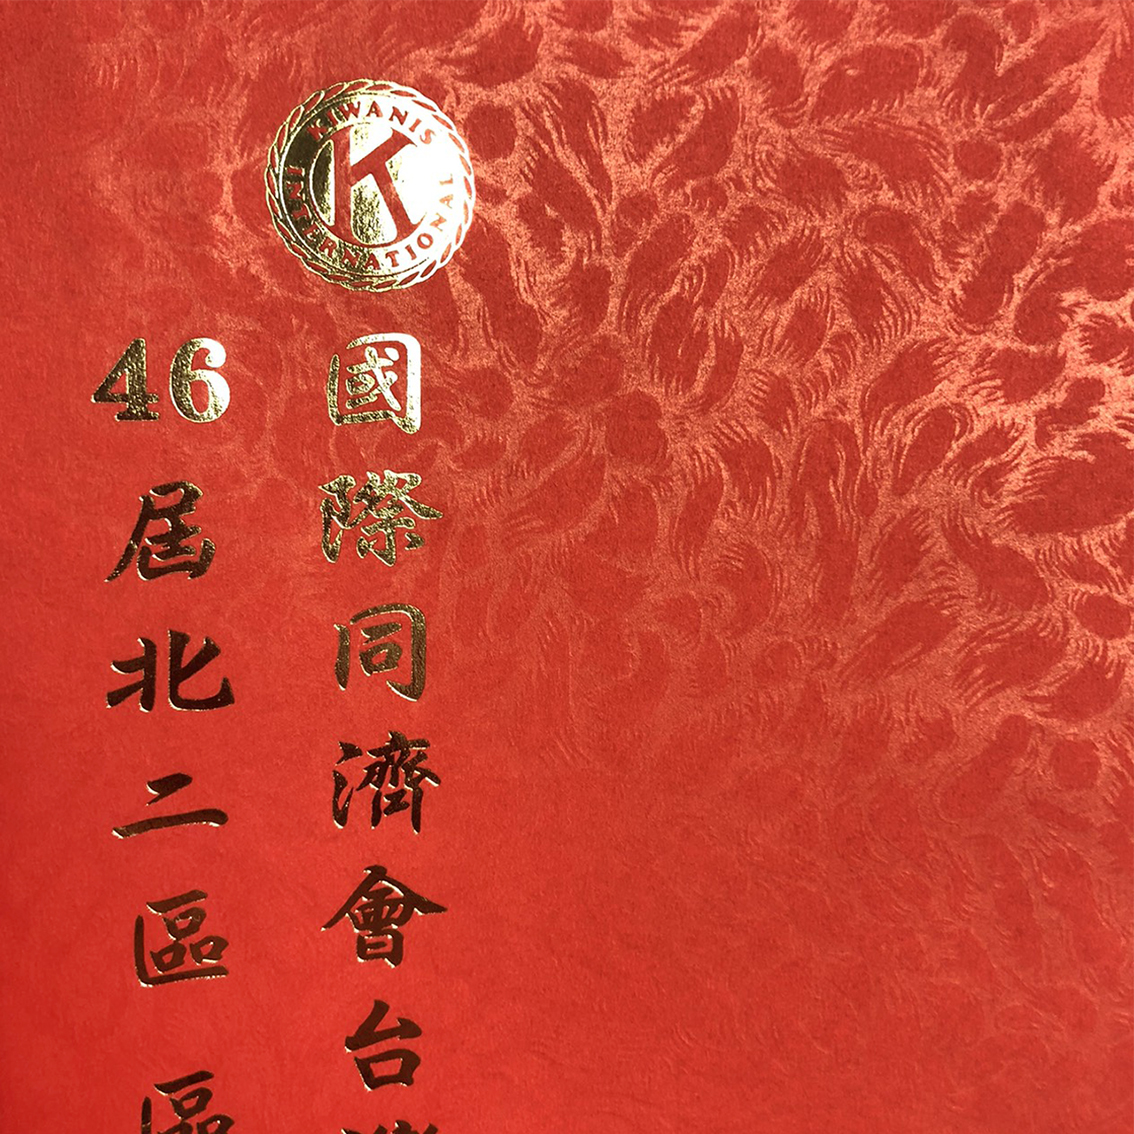 KIWANIS
K
INTERNATIONAL
國際同濟會台
46屆北二區區